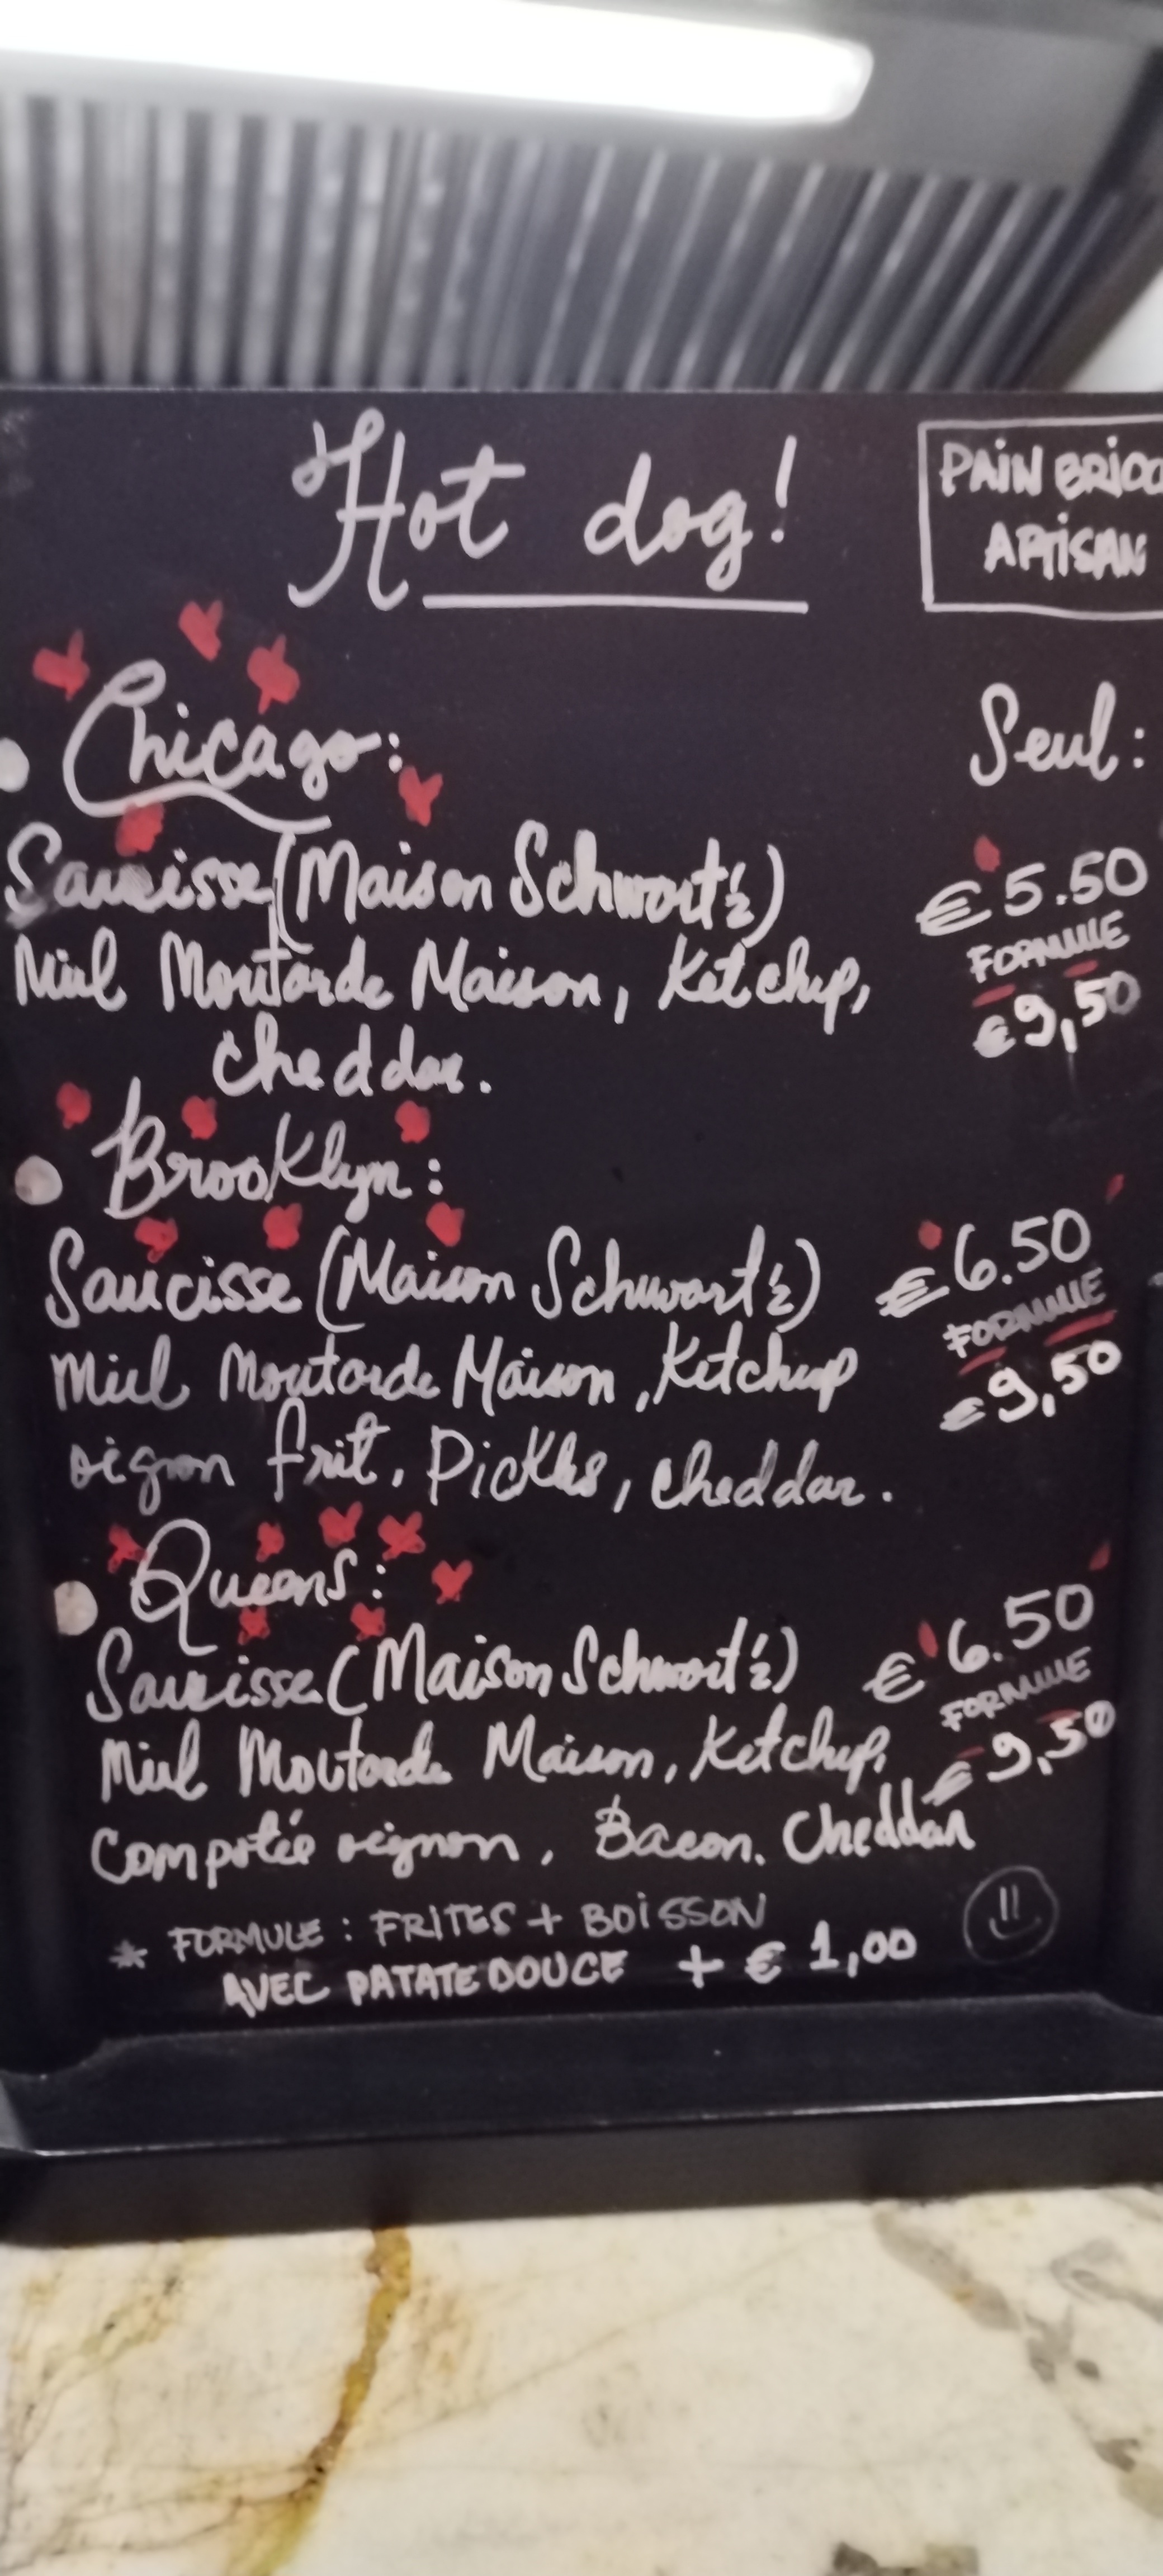 Hot dog!
PAIN BRIOC
ARTISAN
Chicago:
Seul:
Saucisse (Maison Schwart'z)
€ 5.50
Miel Moutarde Maison, Ketchup,
FORMULE
€ 9,50
cheddar.
Brooklyn:
Saucisse (Maison Schwart'z)
€ 6.50
Miel Moutarde Maison, Ketchup
FORMULE
€ 9,50
oignon frit, Pickles, cheddar.
Queens:
Saucisse (Maison Schwart'z)
€ 6.50
Miel Moutarde Maison, Ketchup,
FORMULE
€ 9,50
Compotée oignon, Bacon, Cheddar
* FORMULE : FRITES + BOISSON
AVEC PATATE DOUCE + € 1,00